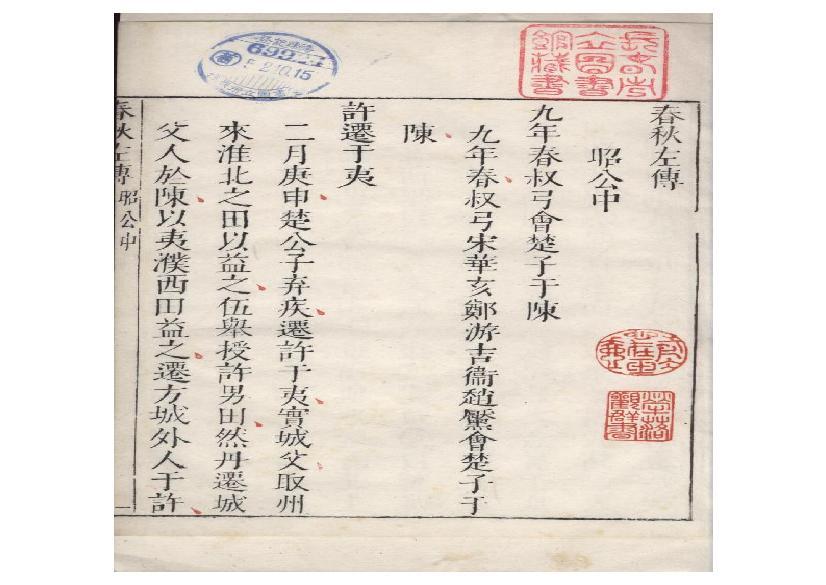 長春市
立圖書
館藏書
春秋左傳
昭公中
九年春叔弓會楚子于陳
九年春叔弓宋華亥鄭游吉衞趙黶會楚子于
陳
許遷于夷
二月庚申楚公子弃疾遷許于夷實城父取州
來淮北之田以益之伍舉授許男田然丹遷城
父人於陳以夷濮西田益之遷方城外人于許
春秋左傳 昭公中 一